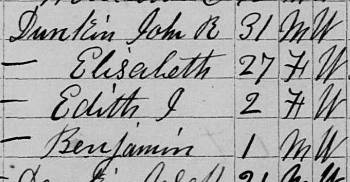 Dunkin John R 31 M W
— Elisabeth 27 F W
— Edith J 2 F W
— Benjamin 1 M W